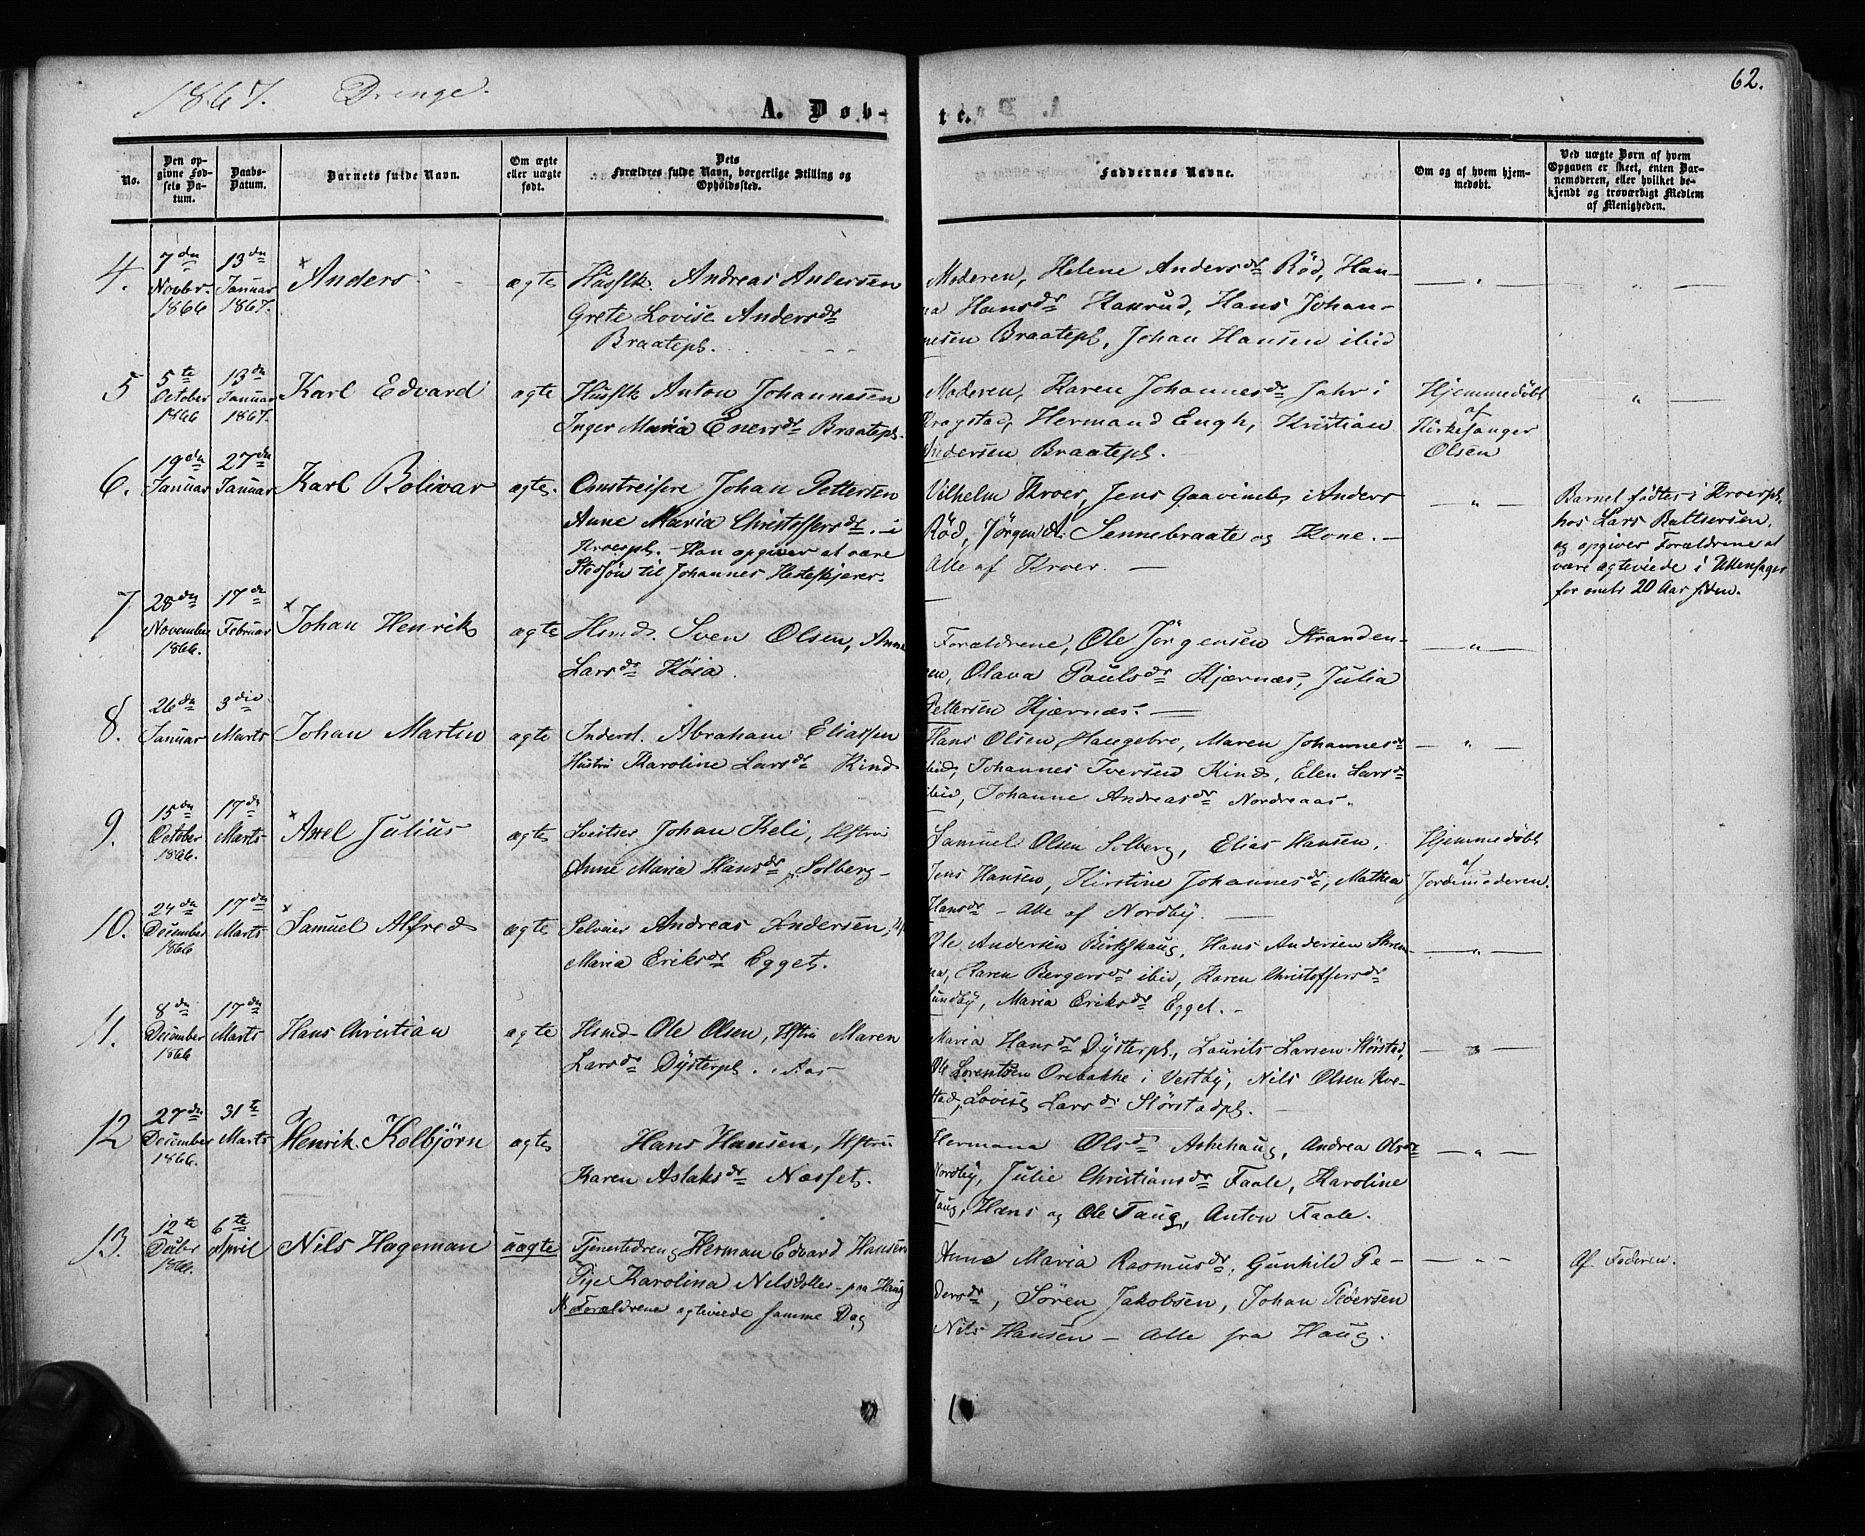 1867. Drenge.
A. Døb-
te.
62.
No.
Den op-
givne Fød-
sels Da-
tum.
Daabs-
Datum.
Barnets fulde Navn.
Om ægte
eller uægte
født.
Dets
Forældres fulde Navn, borgerlige Stilling og
Opholdssted.
Faddernes Navne.
Om og af hvem hjem-
medøbt.
Ved uægte Børn af hvem
Opgaven er skeet, enten Bar-
nemoderen, eller hvilket be-
kjendt og troværdigt Medlem
af Menigheden.
4.
7de
Novbr.
1866
13de
Januar
1867.
Anders
ægte
Husfk. Andreas Andersen
Grete Lovise Andersdr
Braatepl.
Moderen, Helene Andersdr Rød, Han-
na Hansdr Haxrud, Hans Johan-
nesen Braatepl, Johan Hansen ibid
5
5te
October
1866
13de
Januar
1867.
Karl Edvard
ægte
Husfk Anton Johannesen
Inger Maria Enersdr Braatepl.
Moderen, Karen Johannesdr Jahr i
Kragstad, Hermand Engh, Kristian
Andersen Braatepl.
Hjemmedøbt
af
Kirkesanger
Olsen
6.
19de
Januar
27de
Januar
Karl Bolivar
ægte.
Omstreifere Johan Pettersen
Anne Maria Christoffersdr. i
Kroerpl. - Han opgiver at være
Stedsøn til Johannes Hesteskjærer.
Vilhelm Kroer, Jens Gaavim, Anders
Rød, Jørgen A. Sennebraate og Kone. -
Alle af Kroer. -
Barnet fødtes i Kroerpl.
hos Lars Baltsersen,
og opgiver Forældrene at
være ægteviede i Ullensager
for omtr 20 Aar siden.
7
28de
November
1866.
17de
Februar
Johan Henrik
ægte
Hsmd. Sven Olsen, Anne
Larsdr Høia.
Forældrene, Ole Jørgensen Stranden-
en, Olava Paulsdr Kjærnæs, Julia
Pettersen Kjærnæs. -
8.
26de
Januar
3die
Marts
Johan Martin
ægte
Inderst. Abraham Eliassen
Hustru Karoline Larsdr Kind
Hans Olsen Haugebro, Maren Johannesdr
ibid, Johannes Iversen Kind, Elen Larsdr
ibid, Johanne Andreasdr Nordreaas.
9.
15de
October
1866.
17de
Marts
Axel Julius
ægte
Sveitser Johan Keli, Hstru
Anne Maria Hansdr, Solberg -
Samuel Olsen Solberg, Elias Hansen,
Jens Hansen, Kirstine Johannesdr, Mathea
Hansdr - Alle af Nordby. -
Hjemmedøbt
af
Jordemoderen.
10.
24de
December
1866
17de
Marts
Samuel Alfred
ægte
Selveier Andreas Andersen,
Maria Eriksdr Egget.
Ole Andersen Birkshaug, Hans Andersen
Karen Bergersdr ibid, Karen Christoffersdr
Sundby, Maria Eriksdr Egget. -
11.
8de
December
1866
17de
Marts
Hans Christian
ægte
Hsmd- Ole Olsen, Hstru Maren
Larsdr Dysterpl. i Aas
Maria Hansdr Dysterpl, Laurits Larsen Størstad,
Ole Lorentsen Orebakke i Vestby, Nils Olsen Kve-
stad, Lovise Larsdr Størstadpl.
12
27de
December
1866.
31te
Marts
Henrik Kolbjørn
ægte
Hans Hansen, Hstru
Karen Aslaksdr Næsset.
Hermana Olsdr Askehaug, Andrea Olsdr
Nordby, Julie Christiansdr Faale, Karoline
Taug, Hans og Ole Taug, Anton Faale.
13.
12te
Decbr
1866.
6te
April
Nils Hageman
uægte
Tjenestedreng Herman Edvard Hansen
Pige Karolina Nilsdotter paa Haug
Forældrene ægteviede samme Dag
Anne Maria Rasmusdr, Gunhild Pe-
dersdr, Søren Jakobsen, Johan Pedersen
Nils Hansen - Alle fra Haug.
Af Faderen.